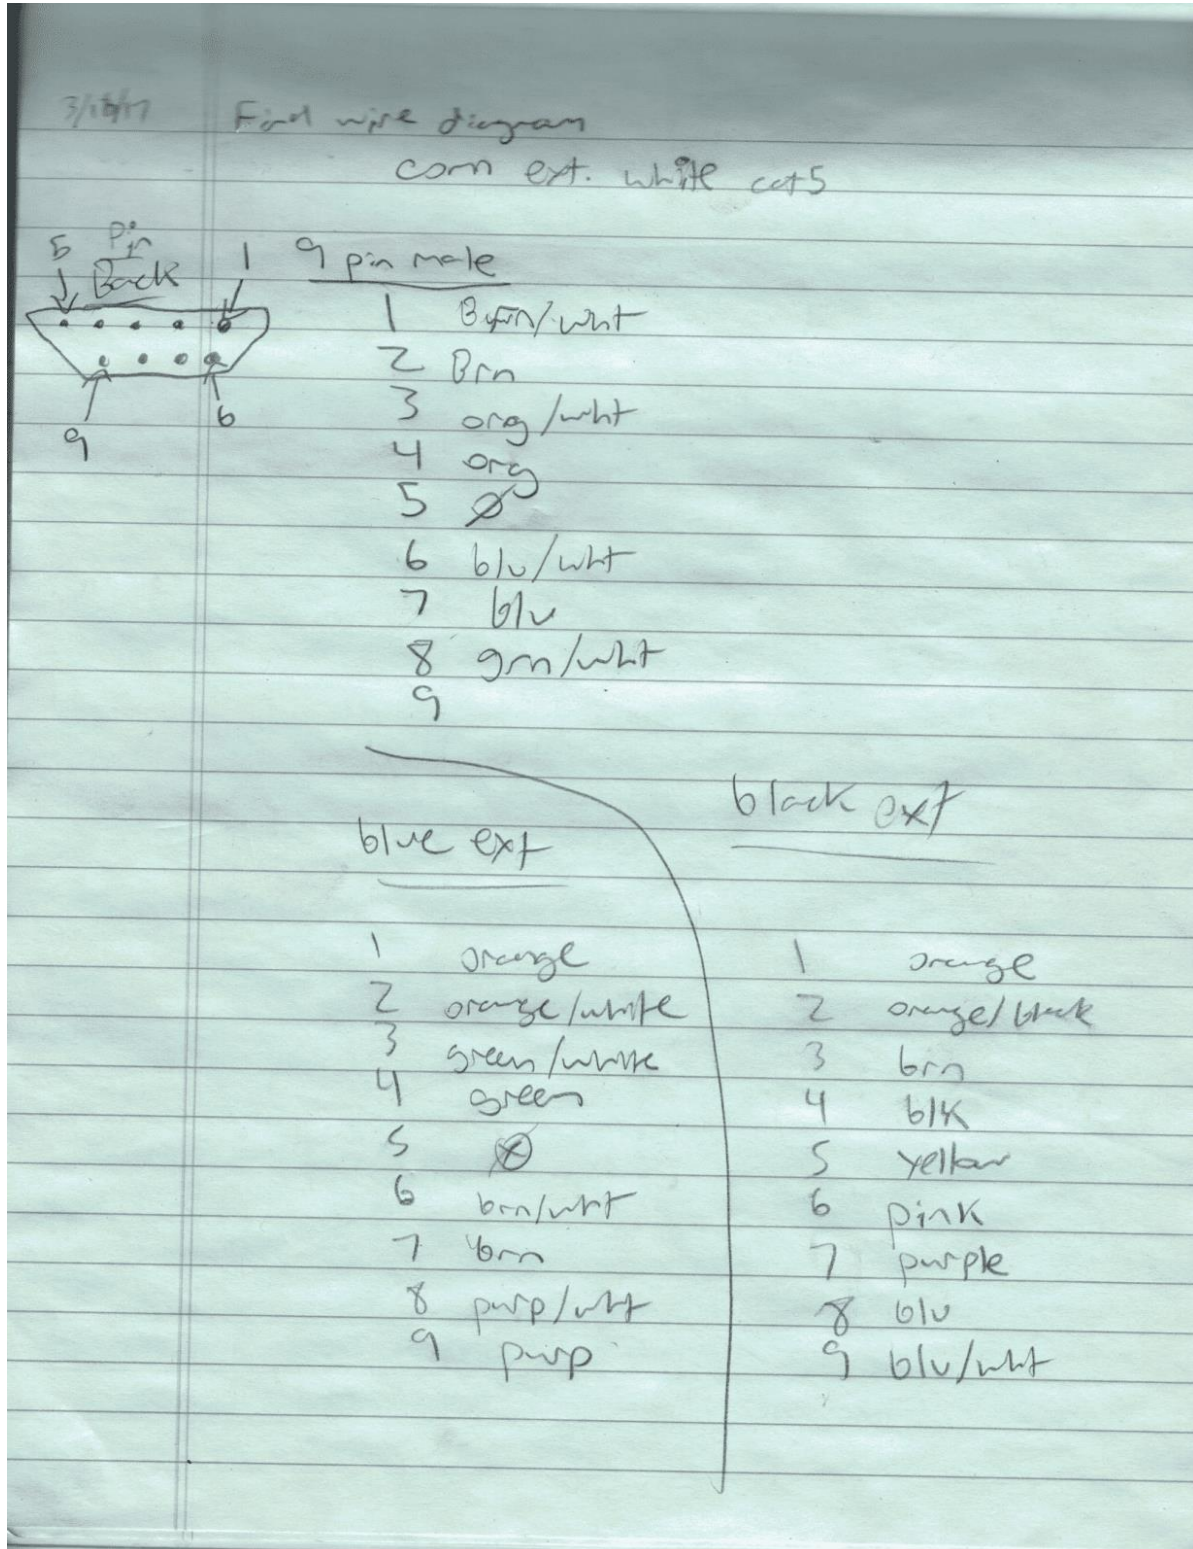 3/18/17 Find wire diagram
com ext. white cat5
5 Pin 1
Back
9 6
9 pin male
1 Brn/wht
2 Brn
3 org/wht
4 org
5 Ø
6 blu/wht
7 blu
8 grn/wht
9
blue ext
1 orange
2 orange/white
3 green/white
4 green
5 Ø
6 brn/wht
7 brn
8 purp/wht
9 purp
black ext
1 orange
2 orange/black
3 brn
4 blk
5 yellow
6 pink
7 purple
8 blu
9 blu/wht